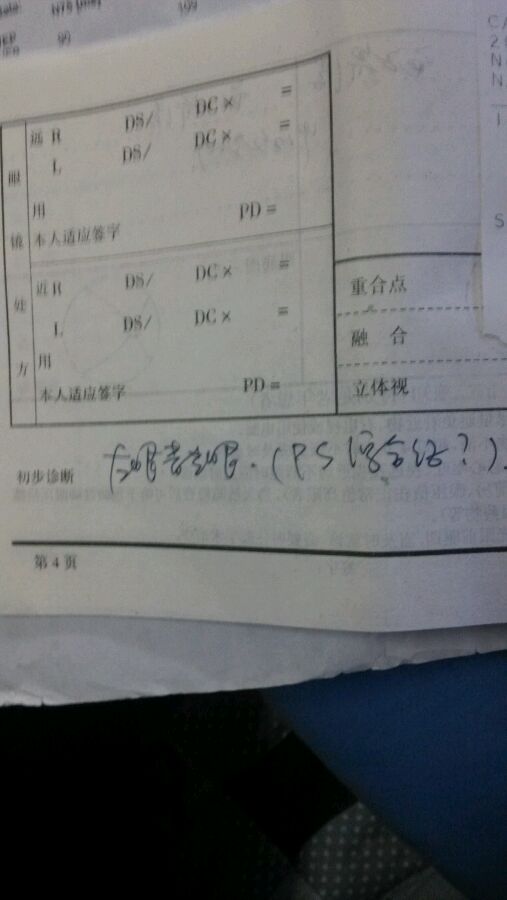 99
眼镜处方
远 R DS/ DC× =
L DS/ DC× =
用
PD=
本人适应签字
近 R DS/ DC× =
L DS/ DC× =
用
本人适应签字 PD=
重合点
融 合
立体视
初步诊断 左眼青光眼.(PS综合征?).
第 4 页